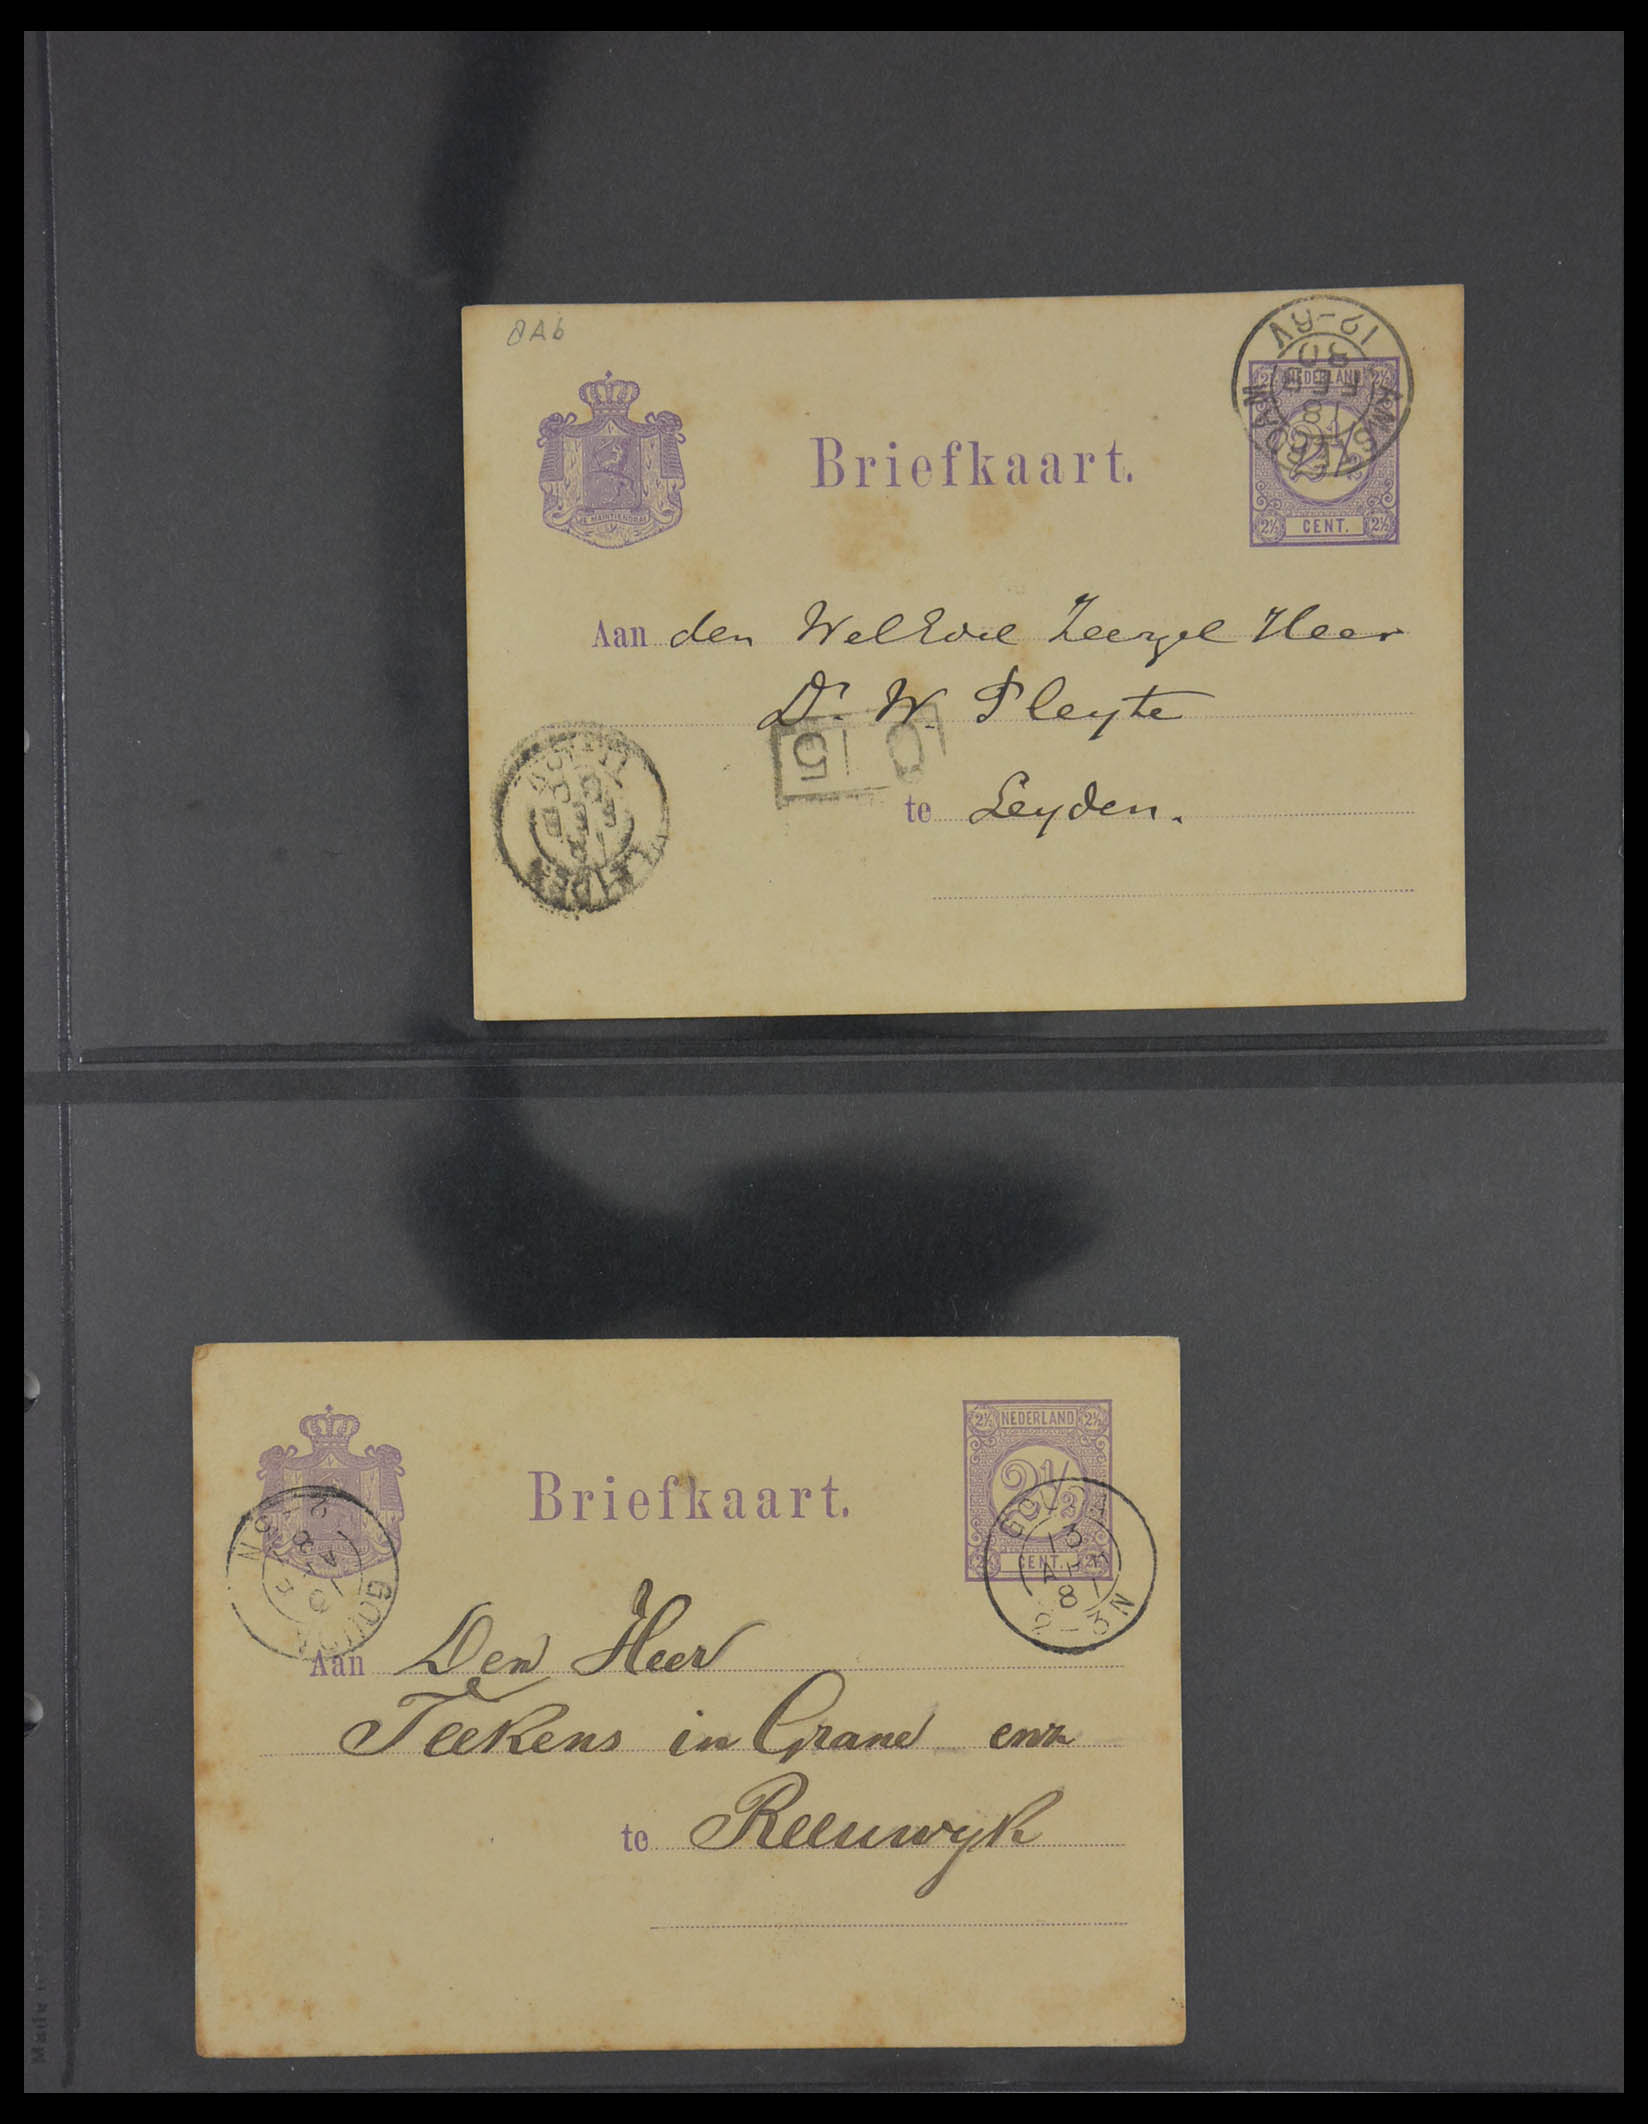 8Ab
JE MAINTIENDRAI
Briefkaart.
2½ NEDERLAND 2½
2½
2½ CENT. 2½
18
FEB
80
12-6V
Aan den WelEdel Zeergel Heer
Dr. W. Pleyte
15
te Leyden.
LEIDEN
Briefkaart.
2½ NEDERLAND 2½
2½
2½ CENT. 2½
GOUDA
13
APR
81
2-3N
GOUDA
Aan Den Heer
Teekens in Crane enz
te Reeuwyk